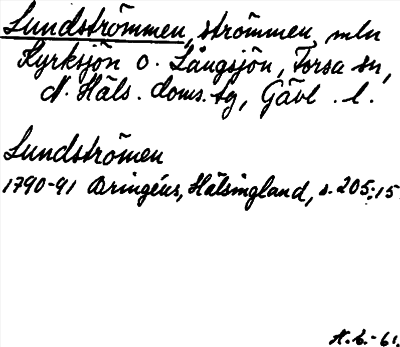 Lundströmmen, strömmen, mln
Kyrksjön o. Långsjön, Forsa sn,
N. Häls. doms.sg, Gävl. l.
Lundströmen
1790-91 Bringéus, Hälsingland, s. 205:15
H.L.-61.